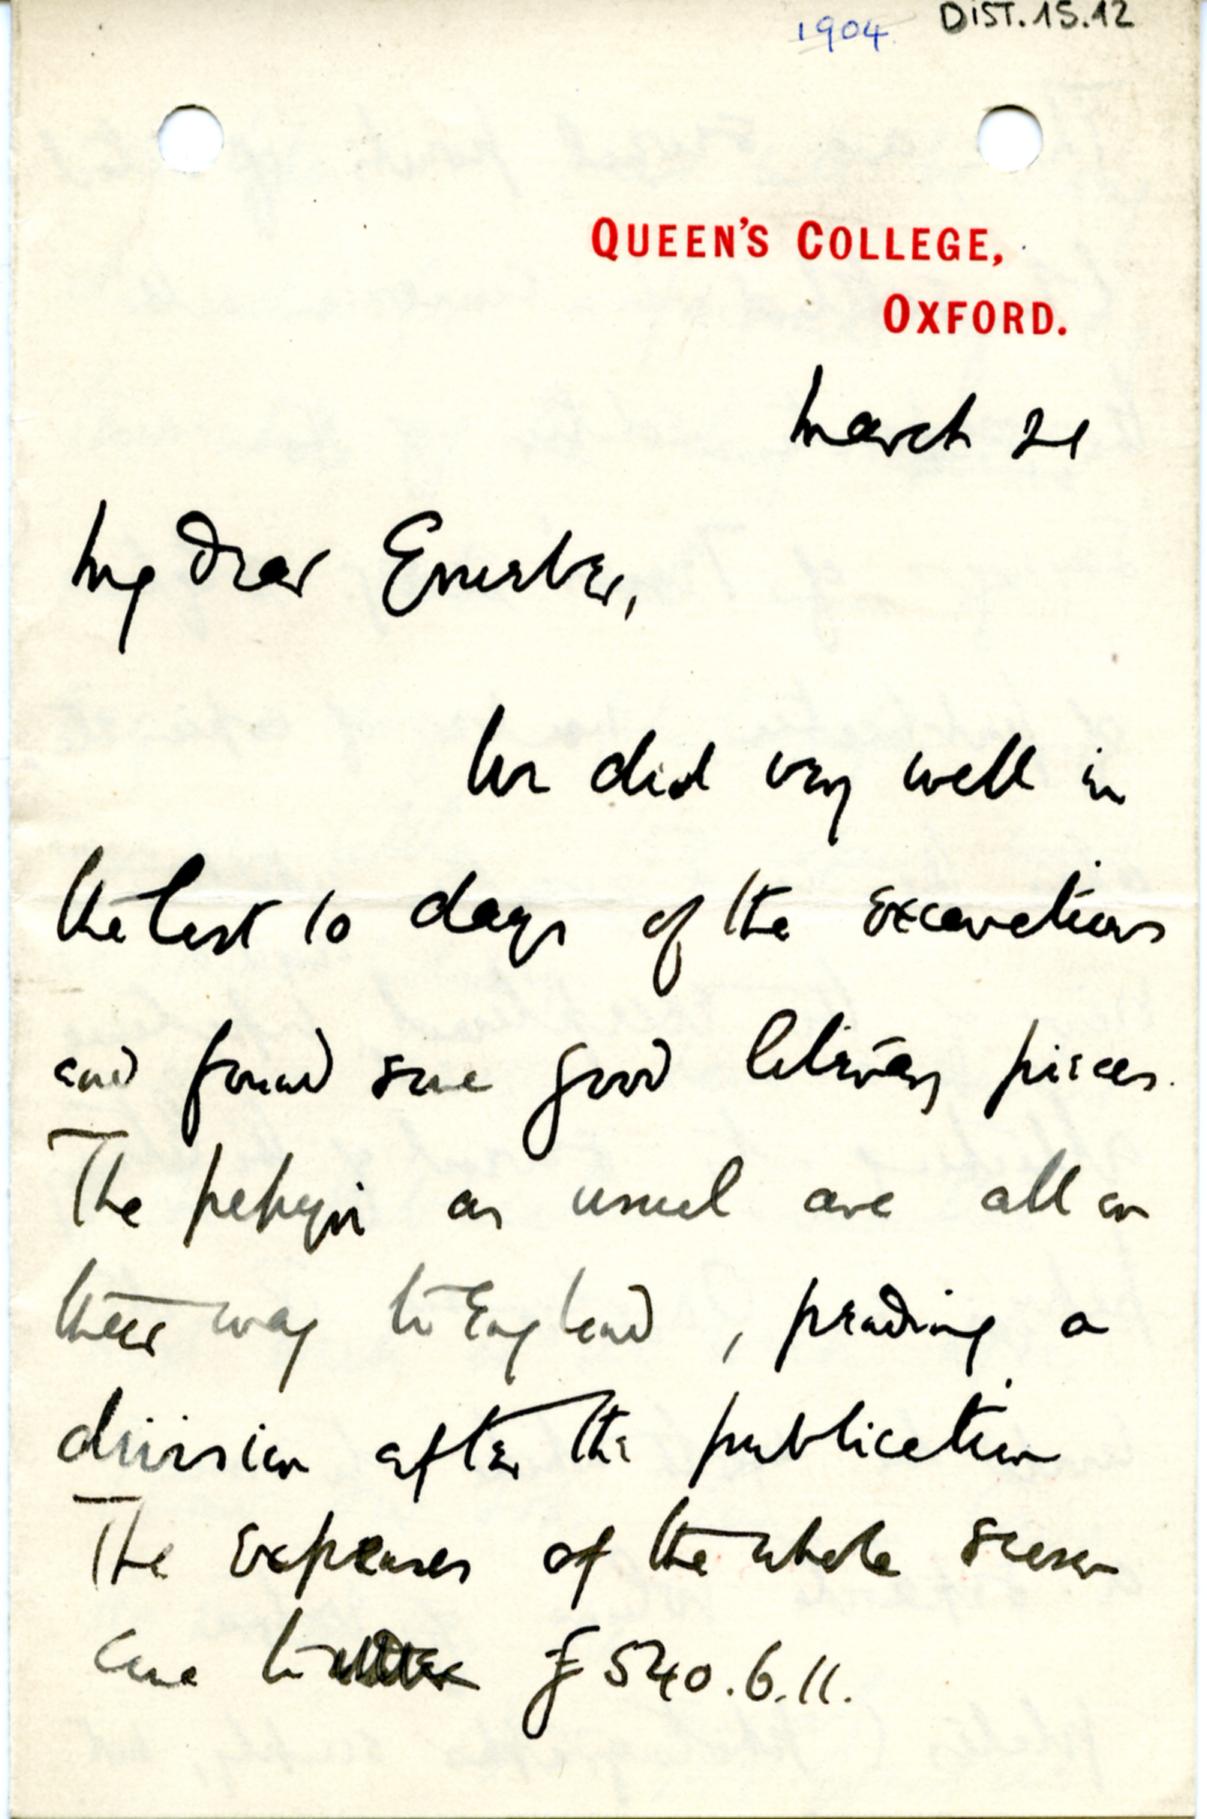 1904 DIST.15.12
QUEEN'S COLLEGE,
OXFORD.
March 21
My dear
We did very well in
the last 10 days of the excavations
and found some good literary pieces.
The papyri as usual are all on
their way to England, pending a
division after the publication
The expenses of the whole season
came to £540.6.11.